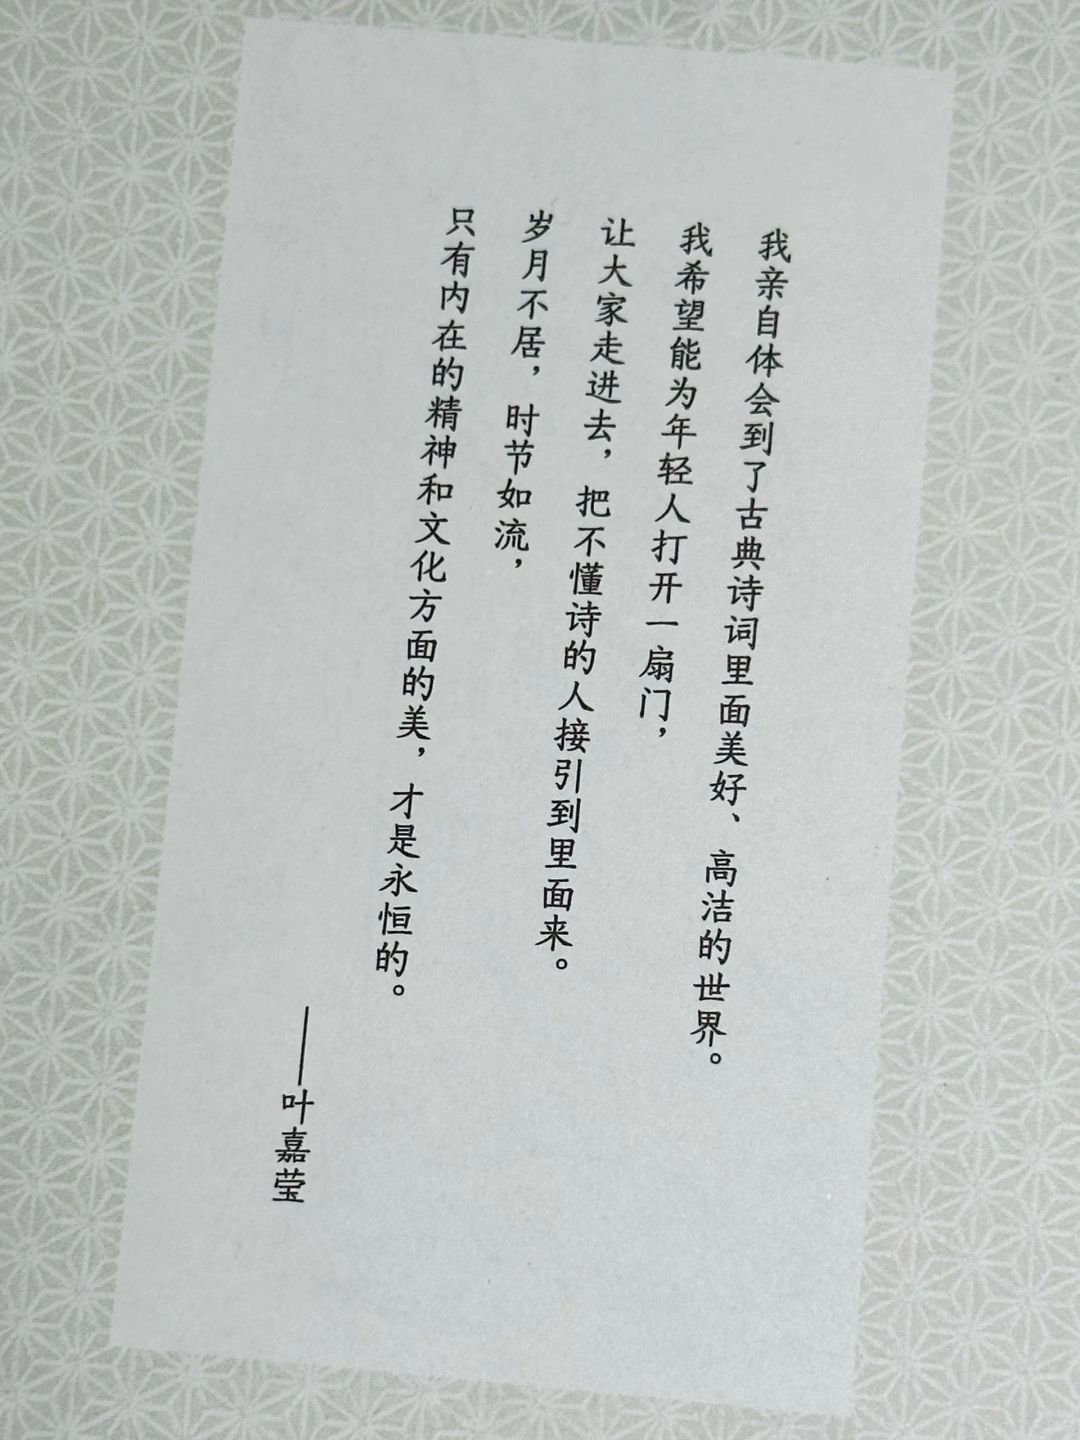 我亲自体会到了古典诗词里面美好、高洁的世界。
我希望能为年轻人打开一扇门，
让大家走进去，把不懂诗的人接引到里面来。
岁月不居，时节如流，
只有内在的精神和文化方面的美，才是永恒的。
——叶嘉莹